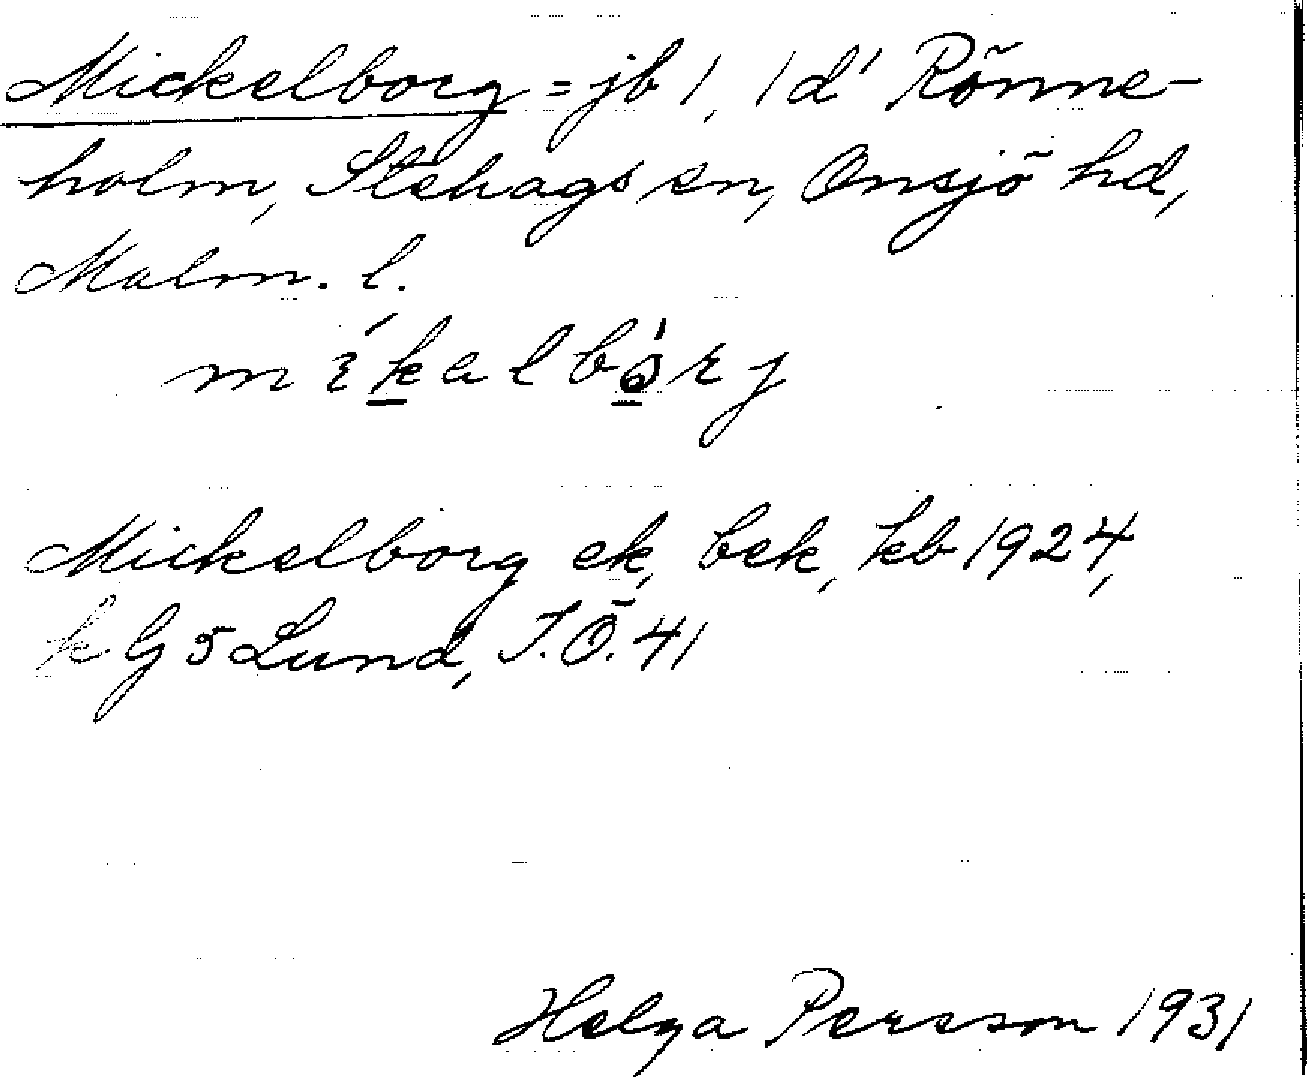 Mickelborg = jb 1, 1d' Rönne-
holm, Stehags sn, Onsjö hd,
Malm. l.
Mickelborg ek, bek, kb 1924,
k G 5 Lund, T.Ö. 41
Helga Persson 1931